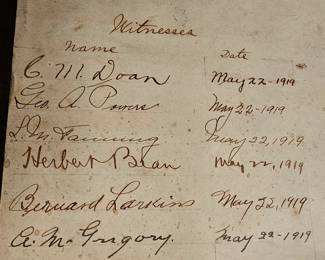 Witnesses
Name Date
C. M. Doan May 22-1919
Geo. A. Powers May 22-1919
L. M. Fanning May 22, 1919
Herbert Bean May 22, 1919
Bernard Larkins May 22, 1919
A. McGrigory. May 22-1919